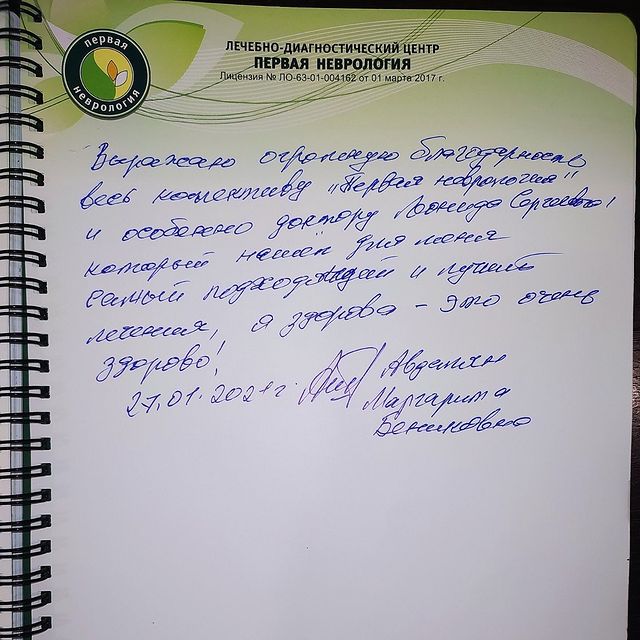 первая
неврология
ЛЕЧЕБНО-ДИАГНОСТИЧЕСКИЙ ЦЕНТР
ПЕРВАЯ НЕВРОЛОГИЯ
Лицензия № ЛО-63-01-004162 от 01 марта 2017 г.
Выражаю огромную благодарность
весь коллективу "Первая неврология"
и особенно доктору Леонида Сергеевича!
который нашёл для меня
самый подходящий и лучший
лечения, я здорова - это очень
здорово!
27.01.2021 г. Авдалян
Маргарита
Бениковна